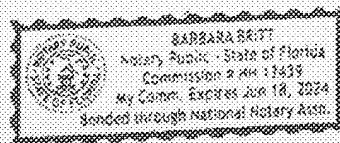 BARBARA BRITT
Notary Public - State of Florida
Commission # HH 13439
My Comm. Expires Jun 18, 2024
Bonded through National Notary Assn.
NOTARY PUBLIC